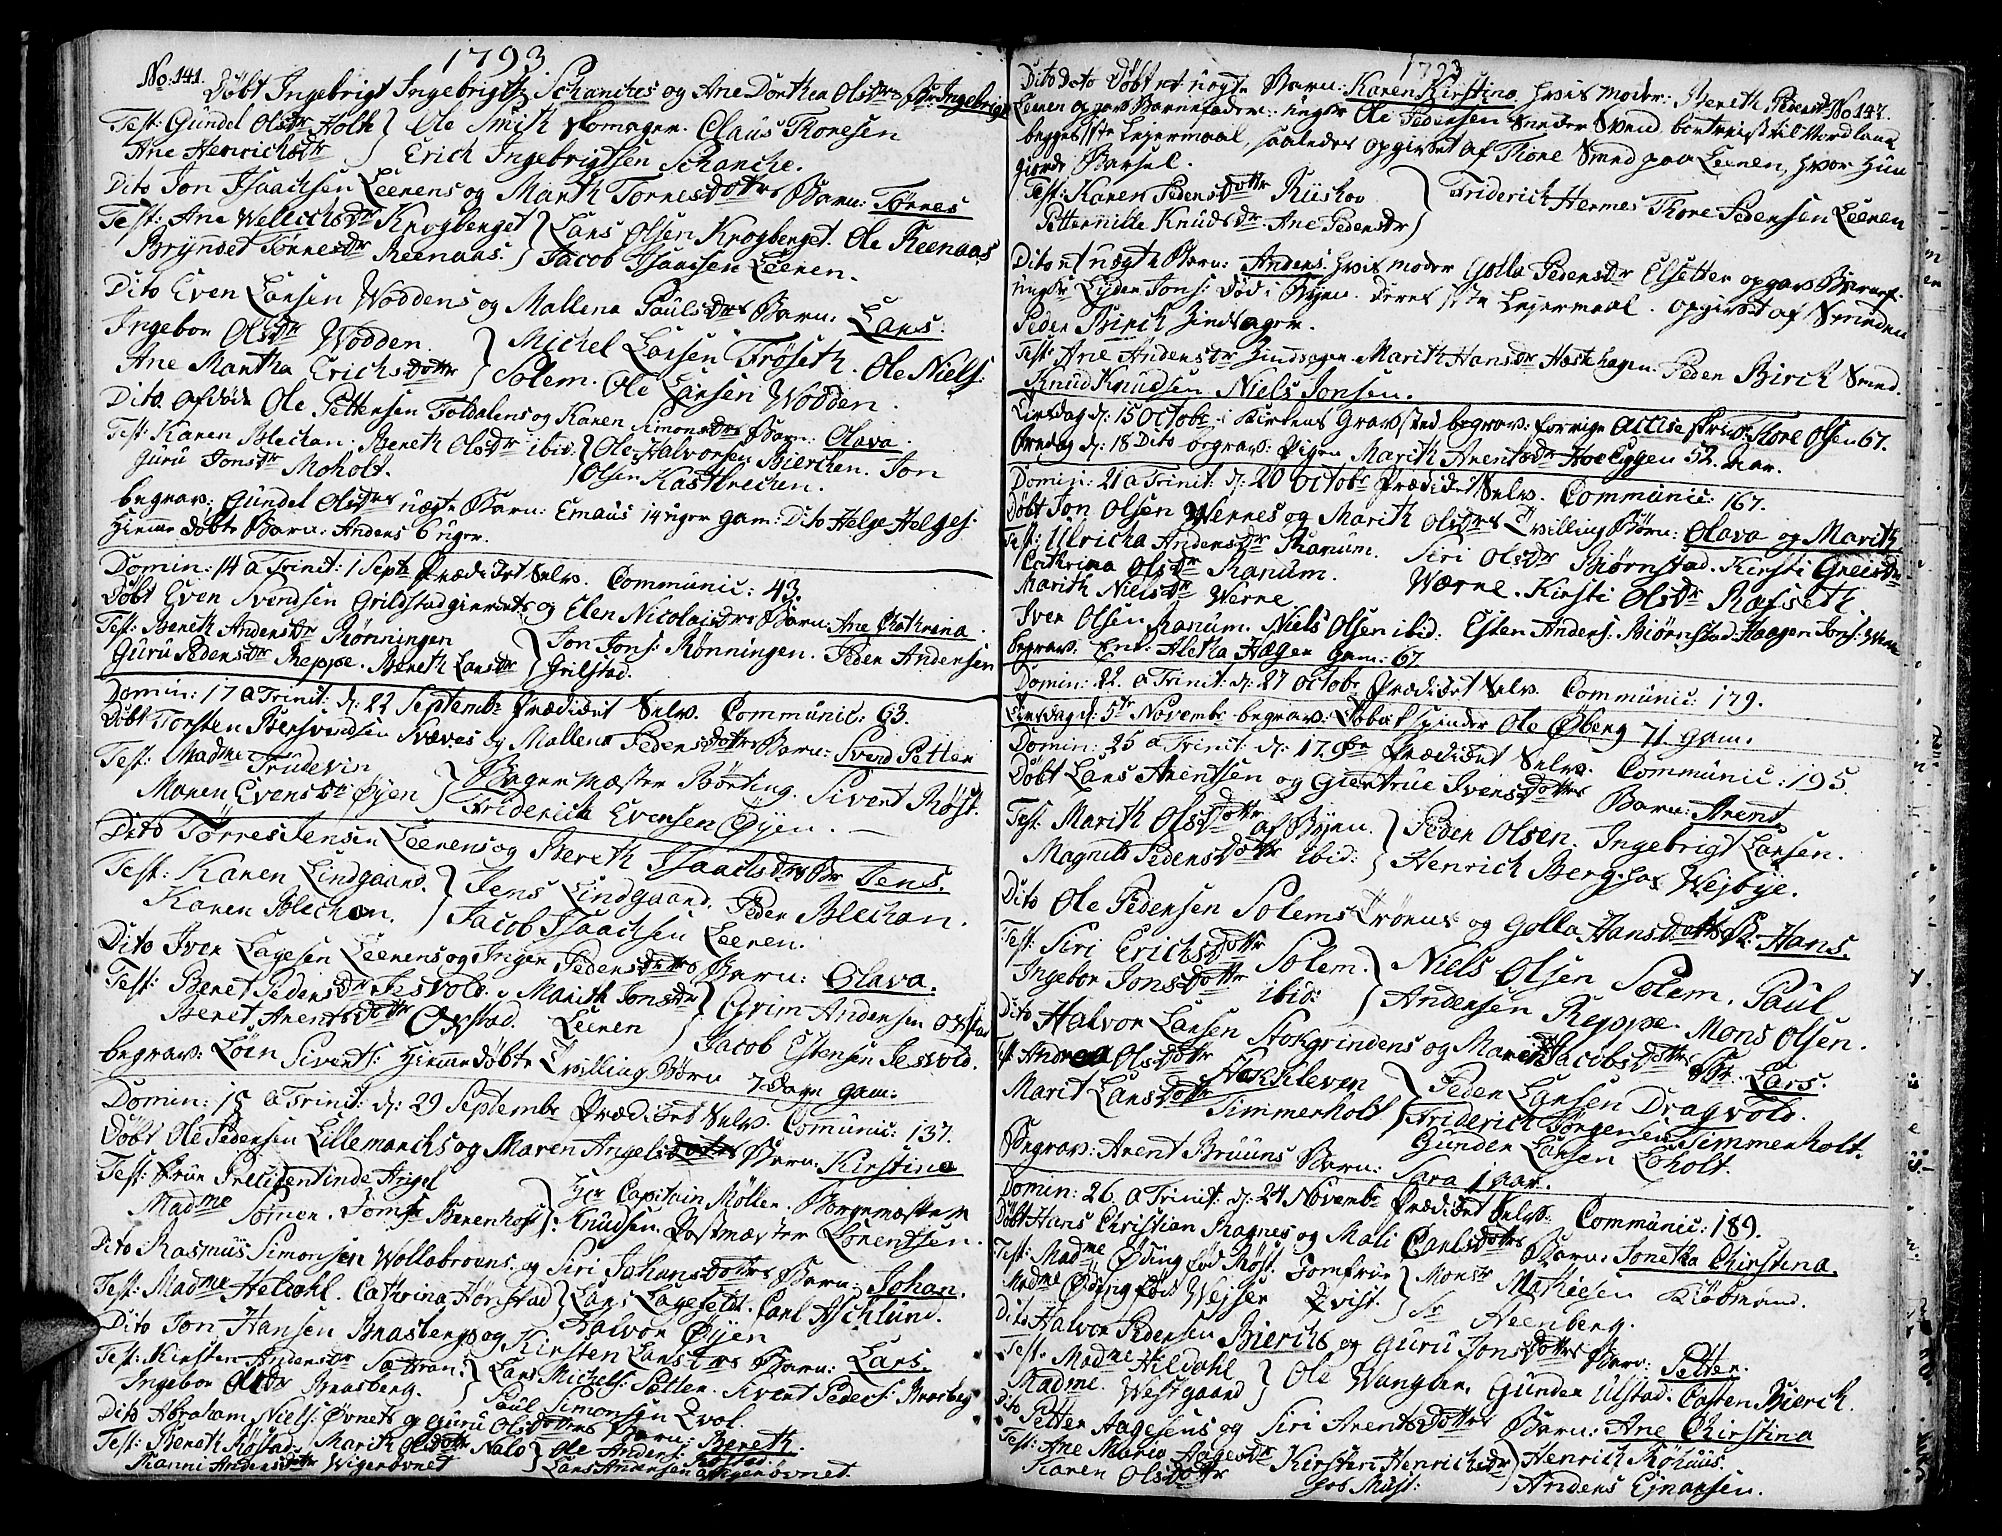 1793
No: 141.
Döbt Ingebrigt Ingebrigts Schanches og Ane Dorthea Olsdrs Br: Ingebrigt
Test: Gundel Olsdr Holte } Ole Smith Skomager. Claus Thonesen
Ane Henrichsdr } Erich Ingebrigtsen Schanche.
Dito Jon Isaachsen Leerens og Marth Tornesdotrs Barn: Tørnes
Test: Ane Wellichsdr Krogberget } Lars Olsen Krogberget. Ole Reenaas
Bryndet Tørresdr Reenaas. } Jacob Isaachsen Leeren.
Dito Even Larsen Woddens og Mallena Paulsdrs Barn: Lars.
Ingebor Olsdr Wodden. } Michel Larsen Frøseth. Ole Niels:
Ane Martha Erichsdottr } Solem. Ole Larsen Wodden.
Dito. Afdøde Ole Pettersen Foldalens og Karen Simonsdrs Barn: Olava.
Test: Karen Blechan. Bereth Olsdr ibid: } Ole Halvorsen Bierchen. Jon
Guru Jonsdr Moholt. } Olsen Kastbrechen.
begrav: Gundel Olsdrs uægte Barn: Emaus 14 uger gam: Dito Helge Helges:
hieme døbte Barn: Anders 6 uger.
Domin: 14 a Trinit: 1 Septr Prædicket Selv. Communic: 43.
Døbt Even Svendsen Grilstadgierets og Elen Nicolaidrs Barn: Ane Cathrena.
Test: Bereth Andersdr Rønningen } Jon Jons: Rønningen. Peder Andersen
Guru Pedersdr Reppe. Bereth Larsdr } Grilstad.
Domin: 17 a Trinit: d: 22 Septembr Prædicket Selv. Communic: 93.
Døbt Torsten Bersvendsen Svæves og Mallena Pedersdotrs Barn: Svend Petter
Test: Madme Trudevin } Bagermæster Børting. Sivert Røst.
Maren Evensdr Øyen } Friderich Evensen Øyen.
Dito Tørres Jensen Leerens og Bereth Isaachsdrs Br Jens.
Test: Karen Lindgaard. } Jens Lindgaard. Peder Blechan.
Karen Blechan. } Jacob Isaachsen Leeren.
Dito Iver Lagesen Leerens og Inger Pedersdotrs Barn: Olava.
Test: Beret Pedersdr Jesvold. Marith Jonsdr } Grim Andersen Oxstad
Beret Arentsdottr Oxstad. Leeren } Jacob Estensen Jesvold.
begrav: Løin Siverts: hieme døbte Tvilling Børn 7 dage gam.
Domin: 18 a Trinit: d: 29 Septembr Prædicket Selv. Comunic: 137.
Døbt Ole Pedersen Lillemarchs og Maren Angelsdotrs Barn: Kirstina
Test: Frue Presidentinde Angel } Hr Capitain Møller. Borgemæster
Madme Sommer. Jomfr Berenhof: } Knudsen. Postmæster Lorentsen.
Dito Rasmus Simonsen Wollabroens og Siri Johansdottrs Barn: Johan.
Test: Madme Heldahl. Cathrina Hørstad } Lars Lagefeldt. Carl Aschlund.
Halvor Øyen
Dito Jon Hansen Brasbergs og Kirsten Larsdrs Barn: Lars.
Test: Kirsten Andersdr Sætran. } Lars Michels: Sætter. Sivert Peders: Brasberg
Ingebor Olsdr Brasberg. } Paul Simonsen Qvol.
Dito Abraham Niels: Øvnets og Guru Olsdottrs Barn: Bereth.
Test: Bereth Røstad. Marith Olsdottr Valo } Ole Anders: Røstad.
Ranni Andersdottr Wigerøvnet } Lars Andersen Wigerøvnet.
1793
Dito Dito Døbt et uægte Barn: Karen Kirstina, hvis Moder: Bereth Pedersdr No: 142.
Leeren opgav Barnefader: ungkr Ole Pedersen Smede Svend bortreist til Nordland
begges 1ste Lejermaal, saaledes opgivet af Thore Smed paa Leeren, hvor hun
giorde Barsel.
Test: Karen Pedersdottr Riiskov } Friderich Hermes Thore Pedersen Leeren
Petternille Knudsdr. Ane Pedersdr }
Dito et uægte Barn: Anders. hvis moder Golla Pedersdr Elsetter opgav Barnef:
ungkr Eyder Jons: død i Byen. Deres 1ste Lejermaal. opgivet af Smeden
Peder Birch
Test: Ane Andersdr Marith Hansdr Peder Birch Smed.
Knud Knudsen Niels Jonsen.
Tirsdag d: 15 Octobr i Kirkens Gravsted begrav: forrige Accise Skriv: Thore Olsen 67.
Fredag d: 18 Dito begrav: Pigen Marith Arentsdr Hoeliggen 52. aar.
Domin: 21 a Trinit: d: 20 Octobr Prædicket Selv. Communic: 167.
Døbt Jon Olsen Wernes og Marith Olsdrs Tvilling Børn: Olava og Marith
Test: Ulricha Andersdr Ranum. Siri Olsdr Biørnstad. Kirsti Greisdr
Cathrina Olsdr Ranum. Wærne. Kirsti Olsdr Rafseth.
Marith Nielsdr Werne
Iver Olsen Ranum. Niels Olsen ibid: Esten Anders: Biørnstad. Haagen Jons: Werne
begrav. Enk: Aletha Hæger gam: 67
Domin: 22. a Trinit: d: 27 Octobr Prædicket Selv. Communic: 179.
Tirsdag d: 5te Novembr begrav: Tobakspinder Ole Øberg 71 gam.
Domin: 25 a Trinit: d: 17. 9br Prædicket Selv. Communic: 195.
Døbt Lars Arentsen og Giertrue Iversdottrs Barn: Arent.
Test: Marith Olsdottr af Byen. } Peder Olsen. Ingebrigt Larsen.
Magnild Pedersdottr ibid: } Henrich Berg hos Wejbye.
Dito Ole Pedersen Solems Trøens og Golla Hansdottrs Br. Hans.
Test: Siri Erichsdottr Solem. } Niels Olsen Solem. Paul
Ingebor Jonsdottr ibid: } Andersen Reppe. Mons Olsen.
Dito Halvor Larsen Stokgrindens og Maren Jacobsdottrs Br. Lars.
Test: Andrea Olsdottr Hoxkleven } Peder Larsen Dragvold.
Marit Larsdottr Simmerholt } Friderich Jørgensen Simmerholt.
Gunder Larsen Loholt.
Begrav: Arent Bruuns Barn: Sara 1 aar.
Domin: 26 a Trinit: d: 24 Novembr Prædicket Selv. Communic: 189.
Døbt Hans Christian Ragnes og Mali Carlsdottrs Barn: Jonetha Chirstina.
Test: Madme Øding fød Røst. Jomfrue } Monsr Mathiesen Kiøbmand.
Madme Øding fød Wejser Qvist. } Sr Heenberg.
Dito Halvor Pedersen Bierchs og Guru Jonsdottrs Barn: Petter.
Test: Madme Hildahl } Ole Wangberg. Gunder Ulstad. Casten Bierch.
Madme. Westgaard }
Dito Petter Aagesens og Siri Arentsdottrs Barn: Ane Chirstina
Test: Ane Maria Aagesdr Kirsten Henrichsdr } Henrich Røhuus.
Karen Olsdottr hos Must: } Anders Ejnarsen.